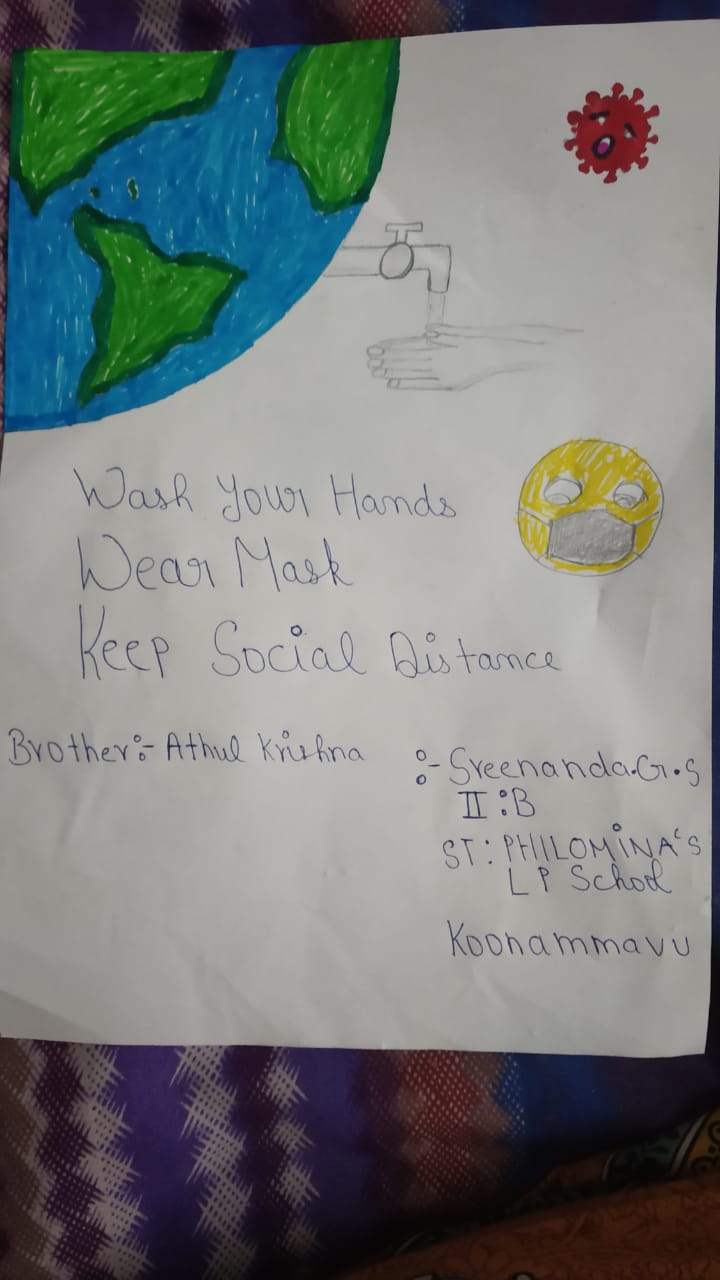 Wash Your Hands
Wear Mask
Keep Social Distance
Brother:- Athul Krishna
:- Sreenanda.G.S
II :B
ST: PHILOMiNA'S
LP School
Koonammavu